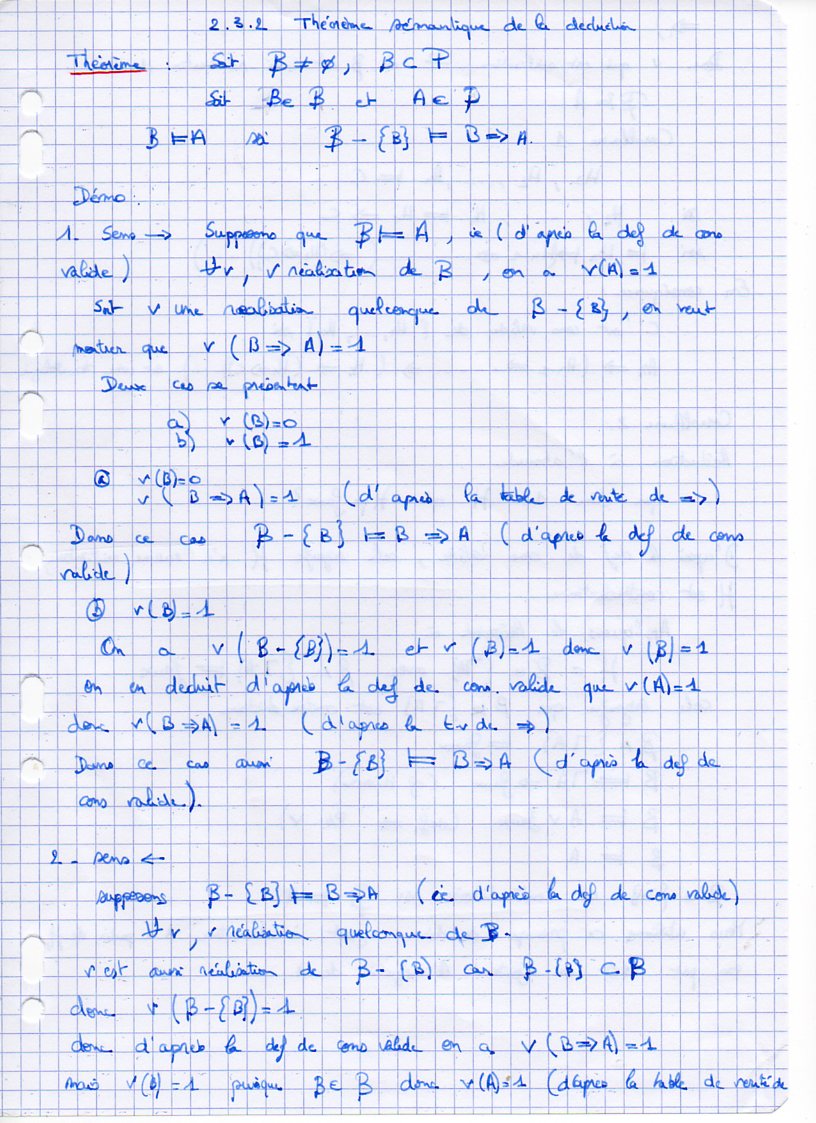 2.3.2 Théorème sémantique de la deduction
Théorème : Soit 𝔹 ≠ ∅, 𝔹 ⊂ ℙ
Soit B ∈ 𝔹 et A ∈ ℙ
𝔹 ⊨ A ssi 𝔹 - {B} ⊨ B => A.
Démo :
1. Sens → Supposons que 𝔹 ⊨ A, ie ( d'après la def de cons
valide) ∀v, v réalisation de 𝔹, on a v(A) = 1
Soit v une realisation quelconque de 𝔹 - {B}, on veut
montrer que v ( B => A) = 1
Deux cas se présentent
a) v (B)=0
b) v (B) = 1
ⓐ v(B)=0
v ( B => A) = 1 (d'après la table de verite de =>)
Dans ce cas 𝔹 - {B} ⊨ B => A ( d'après la def de cons
valide)
ⓑ v(B) = 1
On a v ( 𝔹 - {B}) = 1 et v (B) = 1 donc v (𝔹) = 1
on en deduit d'après la def de cons. valide que v(A)=1
donc v( B => A) = 1 (d'après la tv de =>)
Dans ce cas aussi 𝔹 - {B} ⊨ B => A (d'après la def de
cons valide).
2 - sens ←
supposons 𝔹 - {B} ⊨ B => A (ie d'après la def de cons valide)
∀ v, v réalisation quelconque de 𝔹.
v est aussi réalisation de 𝔹 - {B} car 𝔹 - {B} ⊂ 𝔹
donc v (𝔹 - {B}) = 1
donc d'après la def de cons valide on a v ( B => A) = 1
mais v(B) = 1 puisque B ∈ 𝔹 donc v(A) = 1 (d'après la table de verité de